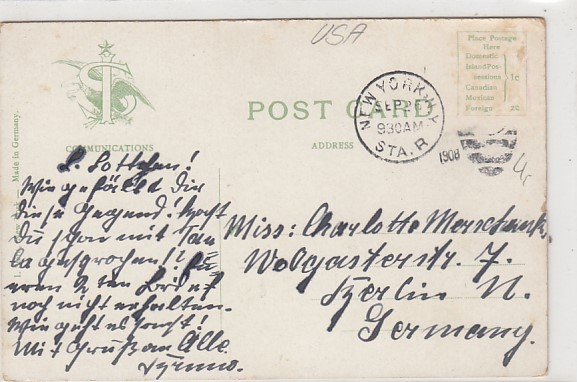 USA
Place Postage
Here
Domestic
Island Pos-
sessions
Canadian
Mexican
1c
Foreign 2c
POST CARD
NEW YORK, N.Y.
SEP
930AM
STA. R
1908
COMMUNICATIONS
ADDRESS
Made in Germany.
L. Lottchen!
Wie gefällt Dir
diese Gegend? Hast
Du schon mit Tan
te gesprochen!?
eren 2ten Brief
noch nicht erhalten.
Wie geht es sonst!
Mit Gruß an Alle
Bruno.
Miss: Charlotte
Wolgasterstr. 7.
Berlin N.
Germany.